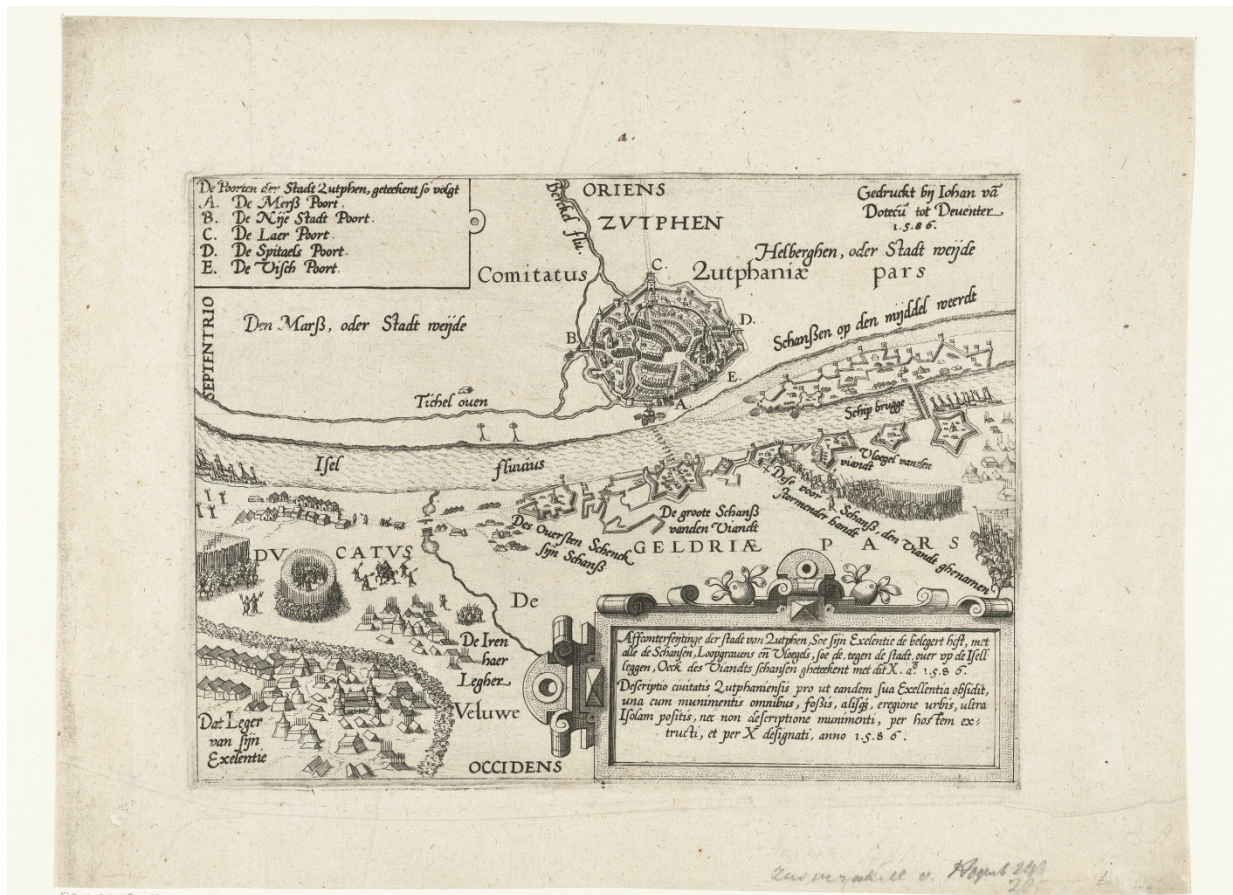 a.
De Poorten der Stadt Zutphen, geteekent so volgt
A. De Merß Poort.
B. De Nije Stadt Poort.
C. De Laer Poort.
D. De Spitaels Poort.
E. De Visch Poort.
Berckel flu.
ORIENS
ZVTPHEN
Gedruckt bij Iohan vā
Dotecū tot Deventer
1.5.86.
Helberghen, oder Stadt weijde
Comitatus Zutphaniæ pars
C.
SEPTENTRIO
Den Marß, oder Stadt weijde
B.
D.
E.
A.
Schanßen op den mijddel weerdt
Tichel ouen
Schip brugge
Isel fluuius
Vloegel vanden
viandt
Dese voor Schanß, den Viandt ghenamen
stormender handt
De groote Schanß
vanden Viandt
Des Ouersten Schenck
sijn Schanß
DVCATVS GELDRIÆ PARS
De
Veluwe
De Iren
haer
Legher
Dat Leger
van sijn
Exelentie
OCCIDENS
Affconterfeytinge der stadt van Zutphen, Soe sijn Exelentie de belegert heft, met
alle de Schansen, Loopgravens en̄ Vloegels, soe de, tegen de stadt, ouer vp de Isell
leggen, Oeck des Viandts schansen gheteekent met dit X. aº. 1.5.8 6.
Descriptio ciuitatis Zutphaniensis pro ut eandem sua Exellentia obsidit,
una cum munimentis omnibus, foßis, alijsqȝ, eregione urbis, ultra
Isolam positis, nec non descriptione munimenti, per hostem ex=
tructi, et per X designati, anno 1.5.8 6.